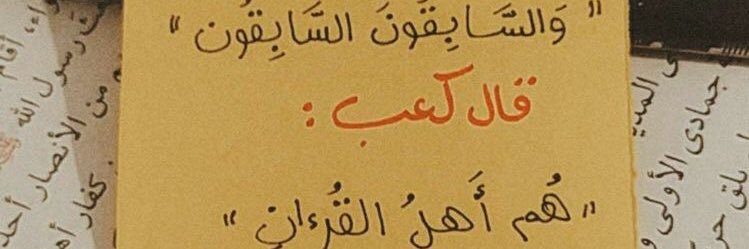 "وَالسَّابِقُونَ السَّابِقُون"
قال كعب :
"هُم أَهلُ القُرءانِ"
أقام
رسول الله
من الأنصار
كفار
جمادى الأولى